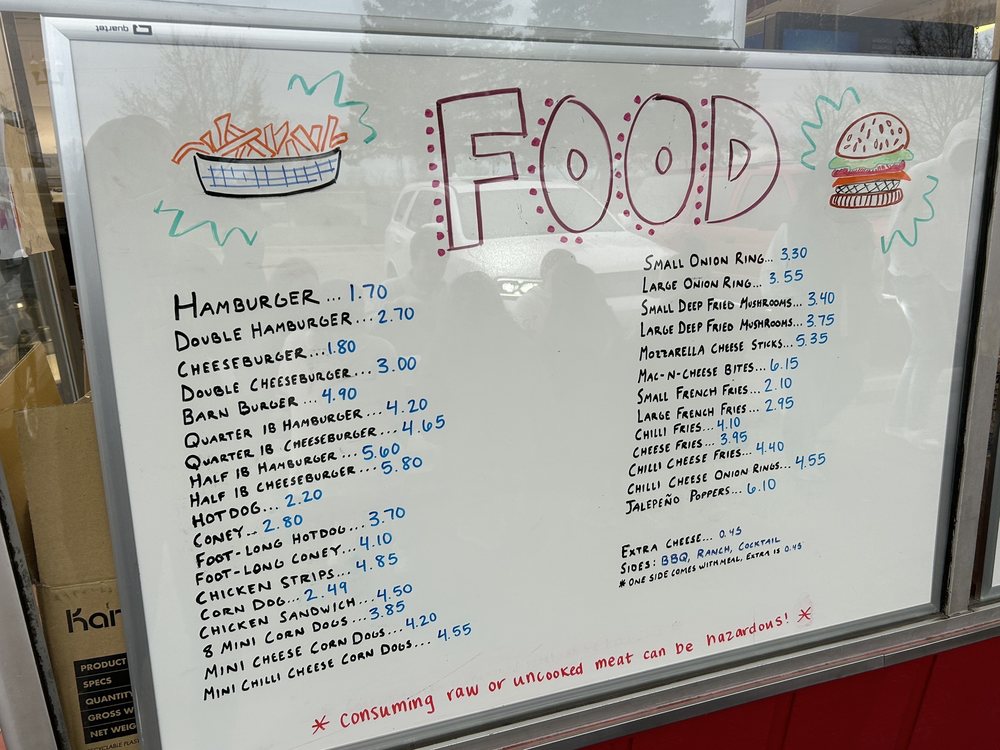 quartet
FOOD
HAMBURGER ... 1.70
DOUBLE HAMBURGER ... 2.70
CHEESEBURGER ... 1.80
DOUBLE CHEESEBURGER ... 3.00
BARN BURGER ... 4.90
QUARTER lB HAMBURGER ... 4.20
QUARTER lB CHEESEBURGER ... 4.65
HALF lB HAMBURGER ... 5.60
HALF lB CHEESEBURGER ... 5.80
HOTDOG ... 2.20
CONEY ... 2.80
FOOT-LONG HOTDOG ... 3.70
FOOT-LONG CONEY ... 4.10
CHICKEN STRIPS ... 4.85
CORN DOG ... 2.49
CHICKEN SANDWICH ... 4.50
8 MINI CORN DOGS ... 3.85
MINI CHEESE CORN DOGS ... 4.20
MINI CHILLI CHEESE CORN DOGS ... 4.55
SMALL ONION RING ... 3.30
LARGE ONION RING ... 3.55
SMALL DEEP FRIED MUSHROOMS ... 3.40
LARGE DEEP FRIED MUSHROOMS ... 3.75
MOZZARELLA CHEESE STICKS ... 5.35
MAC-N-CHEESE BITES ... 6.15
SMALL FRENCH FRIES ... 2.10
LARGE FRENCH FRIES ... 2.95
CHILLI FRIES ... 4.10
CHEESE FRIES ... 3.95
CHILLI CHEESE FRIES ... 4.40
CHILLI CHEESE ONION RINGS ... 4.55
JALEPEÑO POPPERS ... 6.10
EXTRA CHEESE ... 0.45
SIDES: BBQ, RANCH, COCKTAIL
* ONE SIDE COMES WITH MEAL, EXTRA IS 0.45
* consuming raw or uncooked meat can be hazardous! *
PRODUCT
SPECS
QUANTIT
GROSS W
NET WEIG